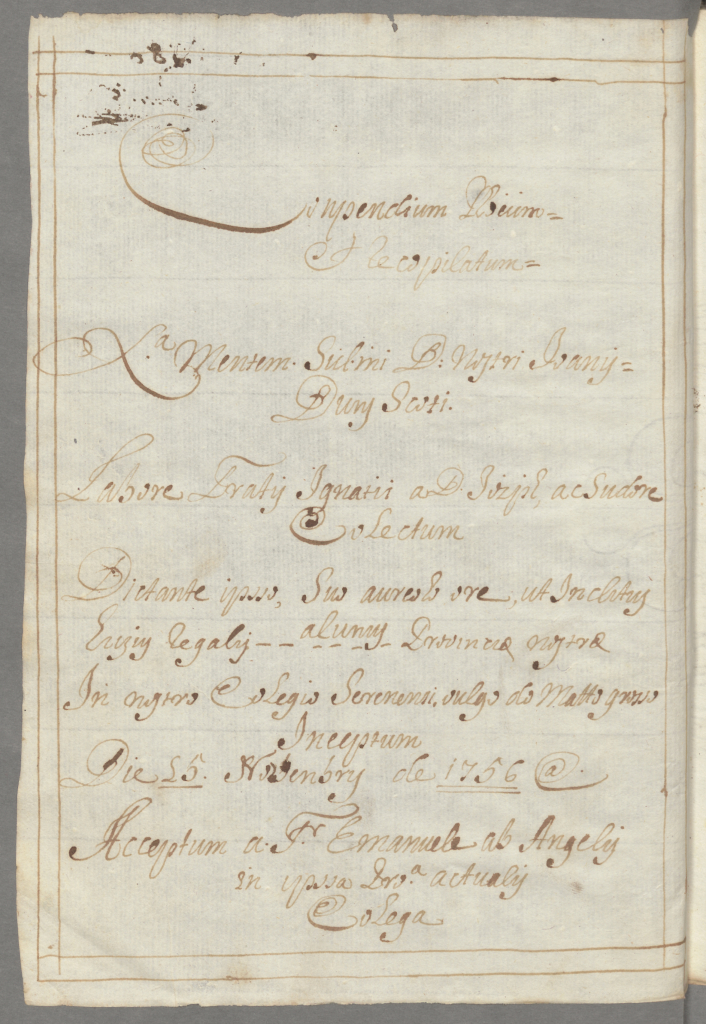 Conpendium
Recopilatum=
Mentem. Subt.mi D: Nostri Joanis=
Duns Scoti.
Labore Fratis Ignatii a D. Jozph, ac Sudore
Colectum
Dictante ipso, Suo aureolo ore, ut Inclitus
huius Regalis - - alunus - Provinciæ nostræ
In nostro Colegio Serenensi, vulgo do Matto grosso
Inceptum
Die 15. Novenbris de 1756
Acceptum a. Fr. Emanuele ab Angelis
in ipssa Pro.a actualis
Colega